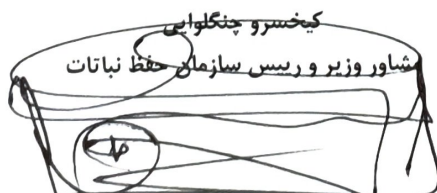 کیخسرو چنگلوایی
مشاور وزیر و رییس سازمان حفظ نباتات